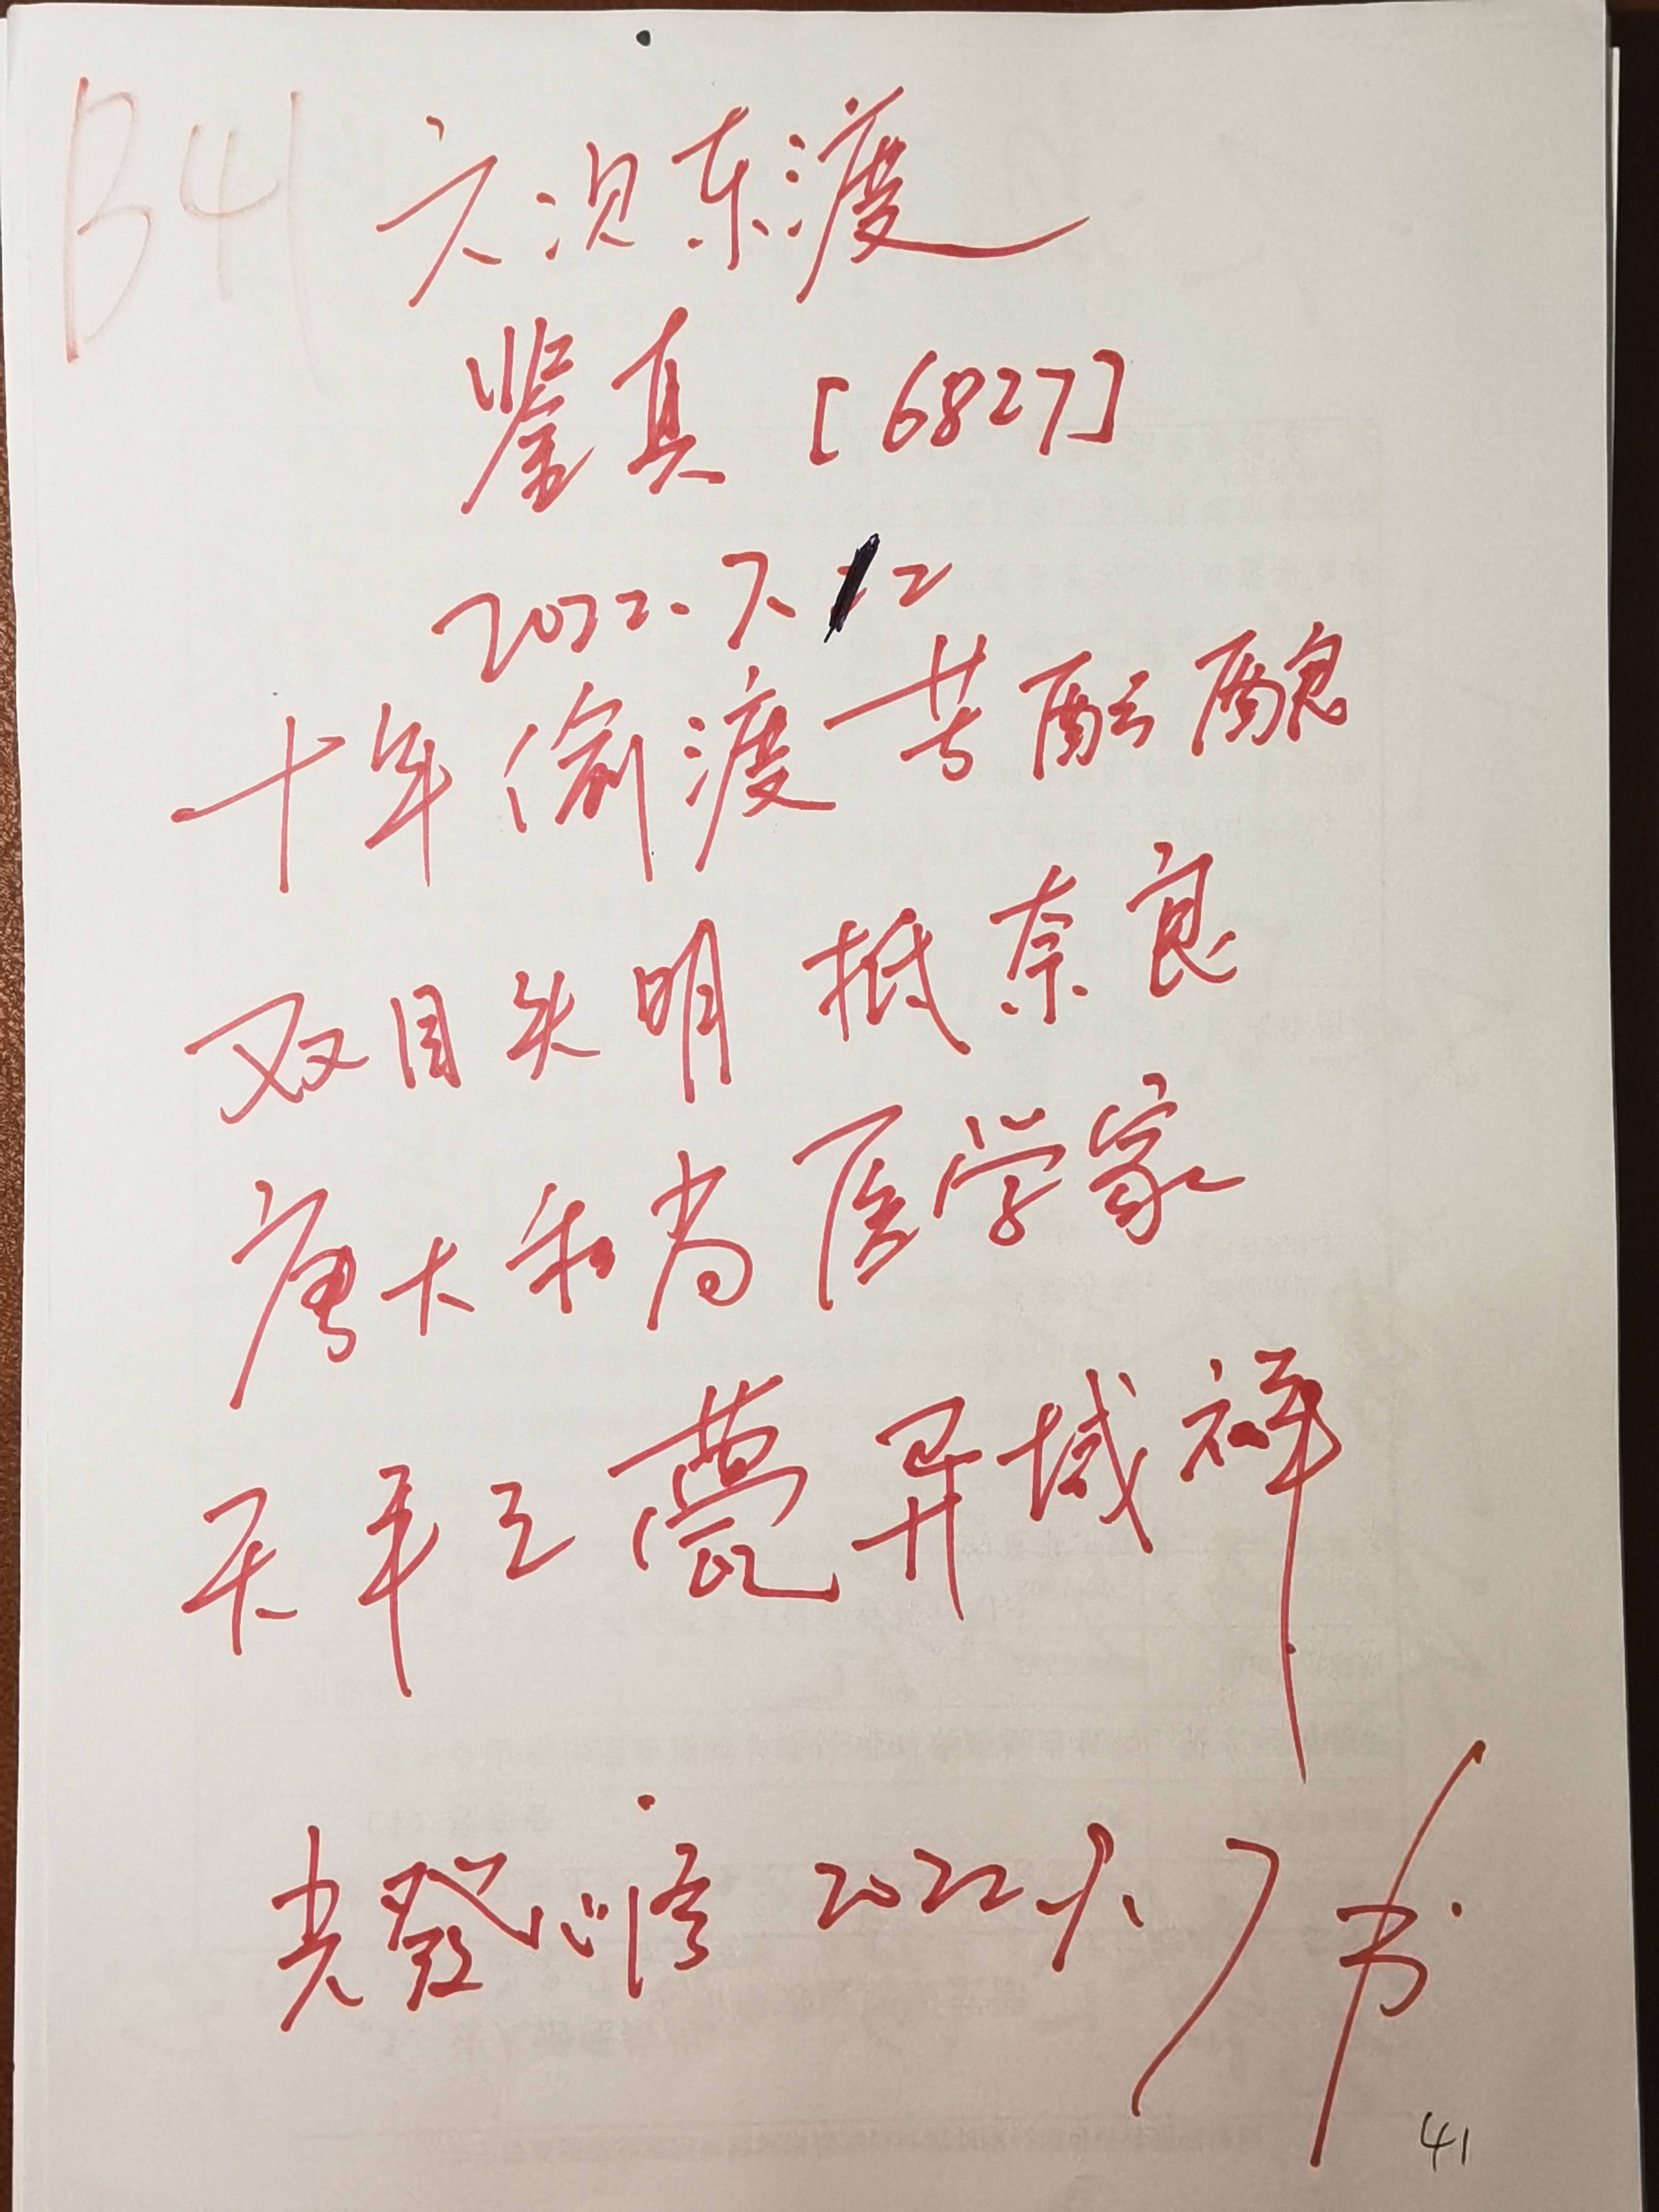 B41
六次东渡
鉴真[6827]
2022.7.12
十年偷渡苦酝
双目失明抵奈良
唐大和尚医学家
天平之甍异域祥
光发心修2022 7书
41